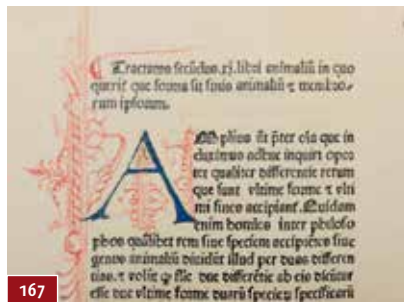 Tractatus secūdus .xj. libri animaliū in quo
querit que forma sit finis animaliū ⁊ membro⸗
rum ipsorum.
A
Mplius āt p̄ter oīa que in
duximus adhuc inquiri opor
tet qualiter differentie rerum
que sunt vltime forme ⁊ vlti
mi fines accipiant. Quidam
enim homines inter philoso
phos quālibet rem siue speciem accipiētes siue
genus animaliū diuidūt illud per duas differen
tias. ⁊ volūt ꝙ sic due differētie ab eis dicātur
esse due vltime forme duarū specierū specificariū
167